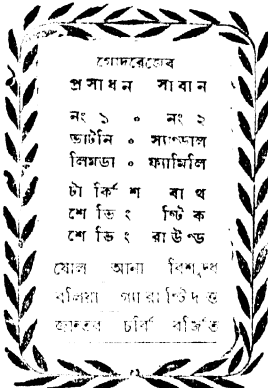 গোদরেজের
প্রসাধন সাবান
নং ১ ॰ নং ২
ভাটনি ॰ স্যাণ্ডাল
লিমডা ॰ ফ্যামিলি
টার্কিশ বাথ
শেভিং ষ্টিক
শেভিং রাউণ্ড
ষোল আনা বিশুদ্ধ
বলিয়া গ্যারান্টিদত্ত
জান্তব চর্বি বর্জিত